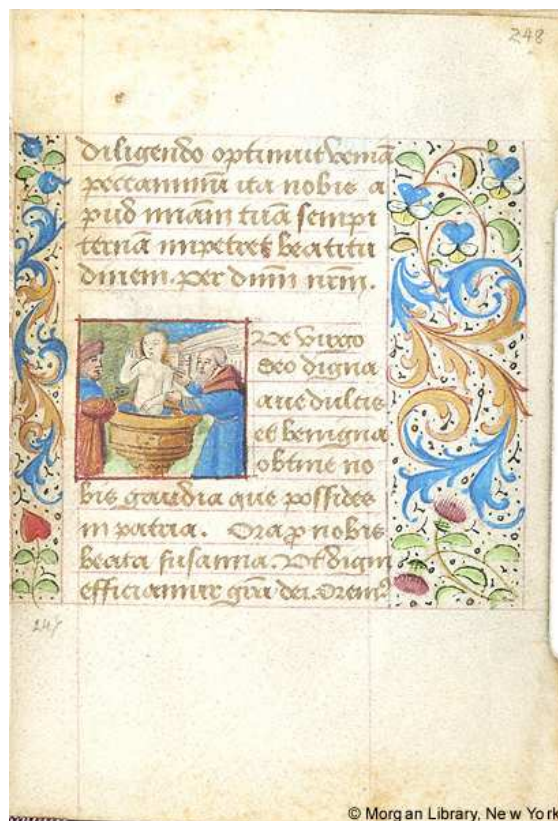 248
diligendo optinuit veniā
peccaminū ita nobis a
pud miām tuā sempi
ternā impetret beatitu
dinem. per dnm nrm.
Ve virgo
deo digna
aue dulcis
et benigna
obtine no
bis gaudia que possides
in patria. Ora p nobis
beata susanna. Vt digni
efficiamur grā dei. Orem9
247
© Morgan Library, New York